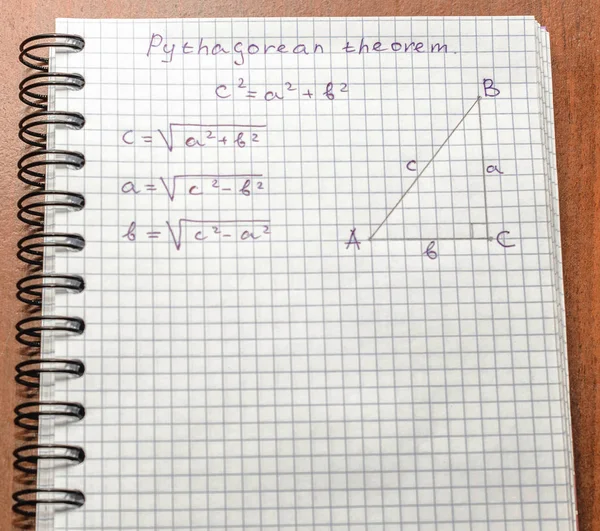 Pythagorean theorem.
c² = a² + b²
c = √(a² + b²)
a = √(c² - b²)
b = √(c² - a²)
B
c
a
A
b
C